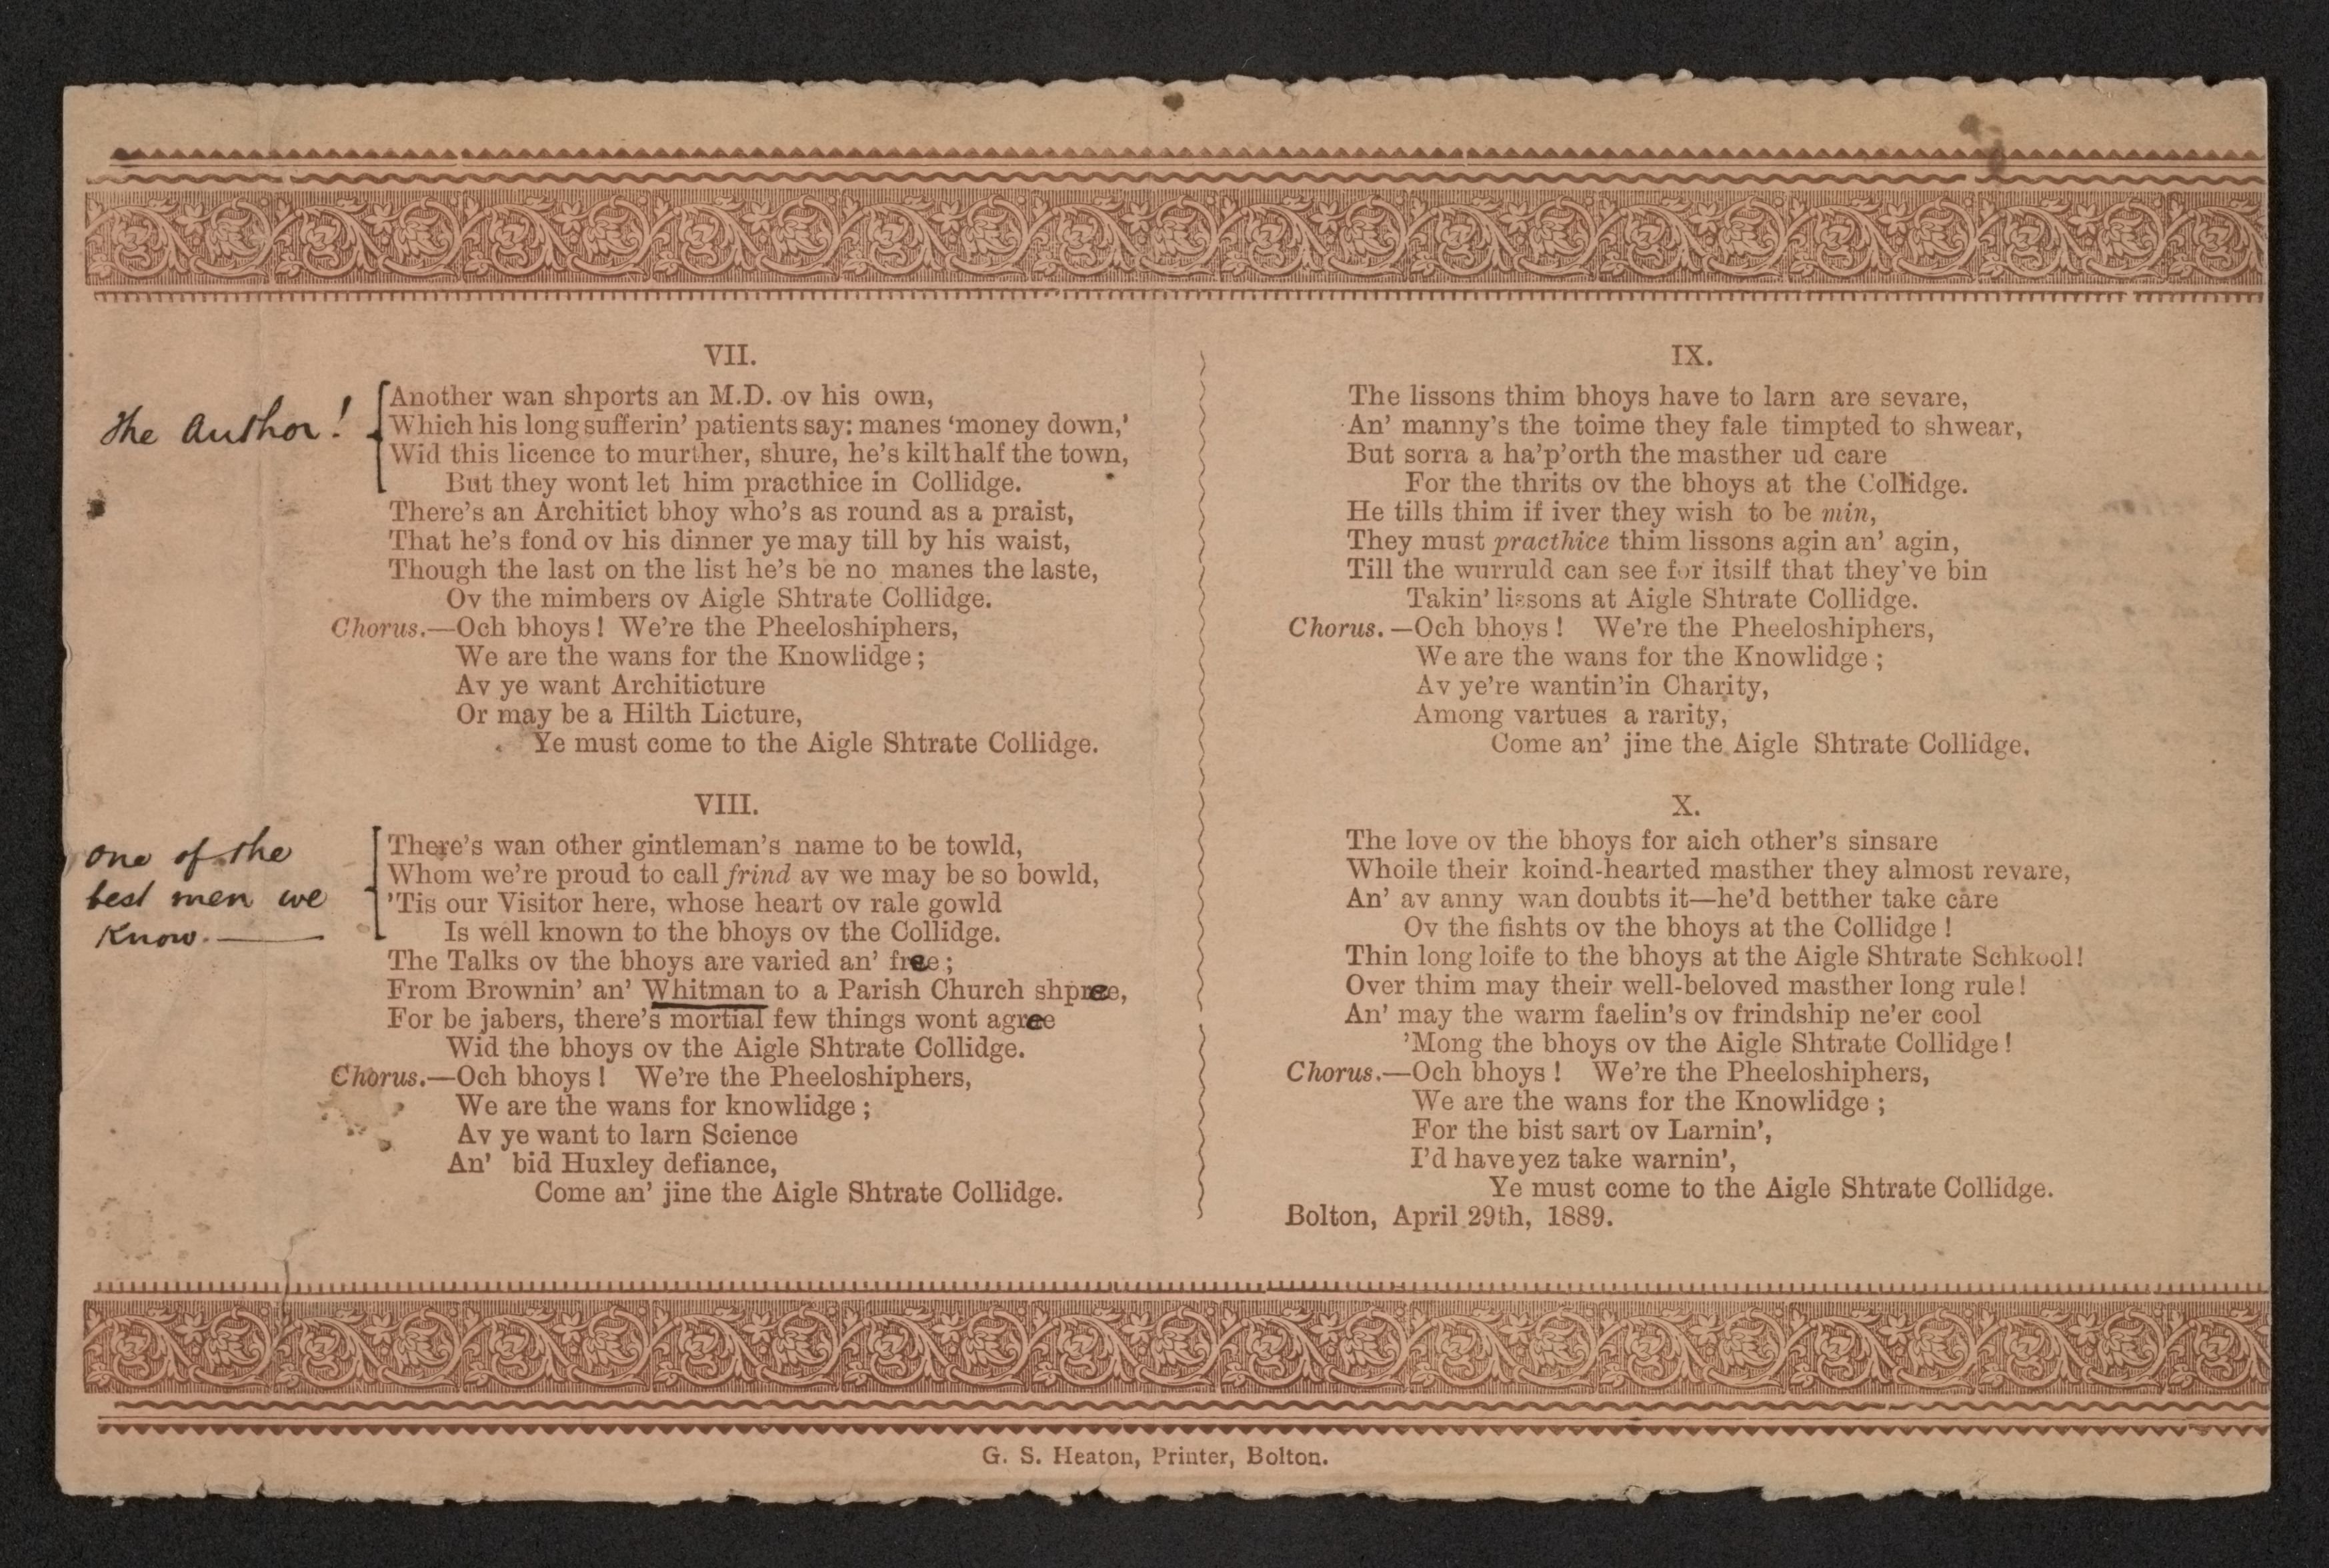 VII.
The Author!
Another wan shports an M.D. ov his own,
Which his long sufferin' patients say: manes 'money down,'
Wid this licence to murther, shure, he's kilt half the town,
But they wont let him practhice in Collidge.
There's an Architict bhoy who's as round as a praist,
That he's fond ov his dinner ye may till by his waist,
Though the last on the list he's be no manes the laste,
Ov the mimbers ov Aigle Shtrate Collidge.
Chorus.—Och bhoys! We're the Pheeloshiphers,
We are the wans for the Knowlidge;
Av ye want Architicture
Or may be a Hilth Licture,
Ye must come to the Aigle Shtrate Collidge.
VIII.
One of the
best men we
Know.—
There's wan other gintleman's name to be towld,
Whom we're proud to call frind av we may be so bowld,
'Tis our Visitor here, whose heart ov rale gowld
Is well known to the bhoys ov the Collidge.
The Talks ov the bhoys are varied an' free;
From Brownin' an' Whitman to a Parish Church shpree,
For be jabers, there's mortial few things wont agree
Wid the bhoys ov the Aigle Shtrate Collidge.
Chorus.—Och bhoys! We're the Pheeloshiphers,
We are the wans for knowlidge;
Av ye want to larn Science
An' bid Huxley defiance,
Come an' jine the Aigle Shtrate Collidge.
IX.
The lissons thim bhoys have to larn are sevare,
An' manny's the toime they fale timpted to shwear,
But sorra a ha'p'orth the masther ud care
For the thrits ov the bhoys at the Collidge.
He tills thim if iver they wish to be min,
They must practhice thim lissons agin an' agin,
Till the wurruld can see for itsilf that they've bin
Takin' lissons at Aigle Shtrate Collidge.
Chorus.—Och bhoys! We're the Pheeloshiphers,
We are the wans for the Knowlidge;
Av ye're wantin' in Charity,
Among vartues a rarity,
Come an' jine the Aigle Shtrate Collidge.
X.
The love ov the bhoys for aich other's sinsare
Whoile their koind-hearted masther they almost revare,
An' av anny wan doubts it—he'd betther take care
Ov the fishts ov the bhoys at the Collidge!
Thin long loife to the bhoys at the Aigle Shtrate Schkool!
Over thim may their well-beloved masther long rule!
An' may the warm faelin's ov frindship ne'er cool
'Mong the bhoys ov the Aigle Shtrate Collidge!
Chorus.—Och bhoys! We're the Pheeloshiphers,
We are the wans for the Knowlidge;
For the bist sart ov Larnin',
I'd have yez take warnin',
Ye must come to the Aigle Shtrate Collidge.
Bolton, April 29th, 1889.
G. S. Heaton, Printer, Bolton.